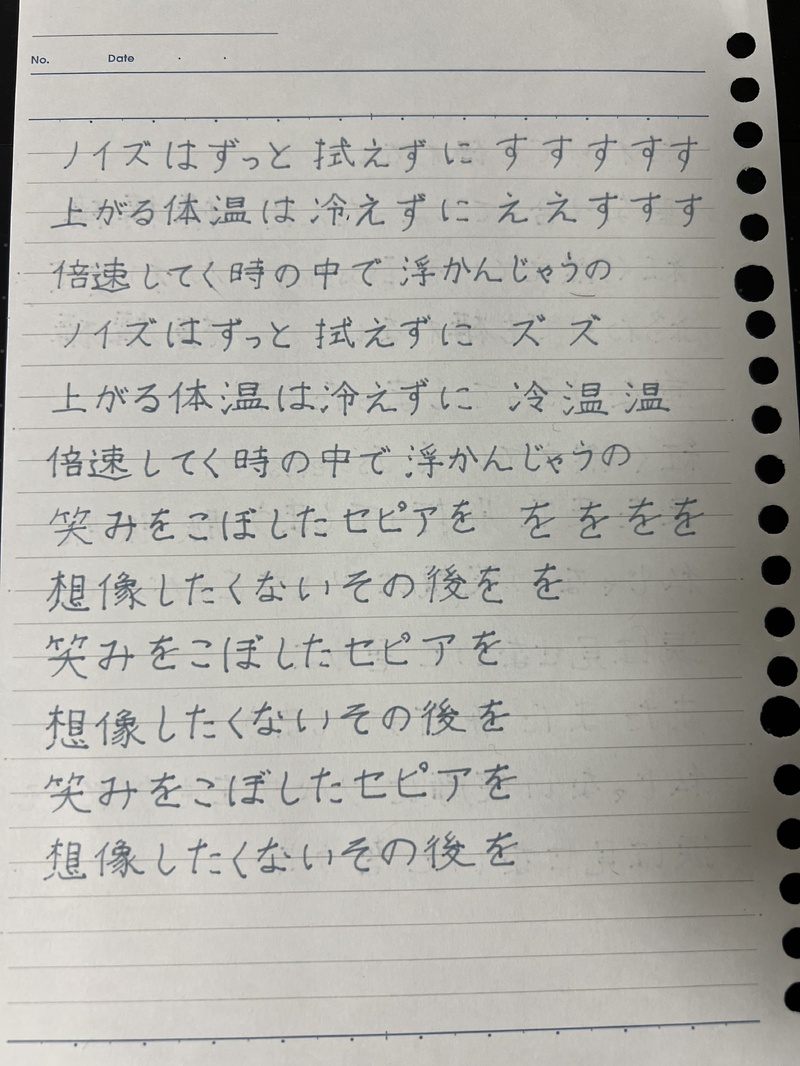 No. Date
ノイズはずっと 拭えずに す す す す す
上がる体温は 冷えずに え え す す す
倍速してく時の中で 浮かんじゃうの
ノイズはずっと 拭えずに ズ ズ
上がる体温は冷えずに 冷 温 温
倍速してく時の中で 浮かんじゃうの
笑みをこぼしたセピアを を を を を
想像したくないその後を を
笑みをこぼしたセピアを
想像したくないその後を
笑みをこぼしたセピアを
想像したくないその後を